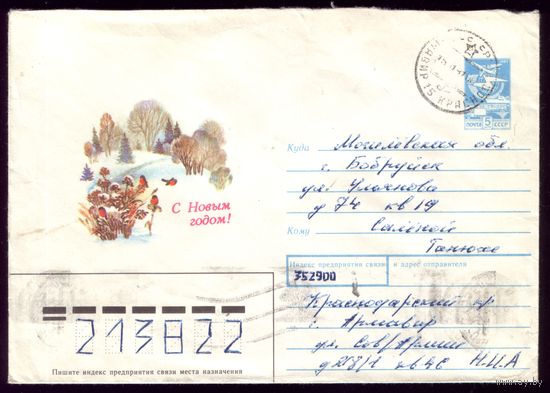 АРМАВИР 15 КРАСНОД
ПОЧТА 5 СССР
С Новым
годом!
Куда Могилевская обл.
г. Бобруйск
ул. Ульянова
д 74 кв 19
Кому Салёной
Танюхе
Индекс предприятия связи и адрес отправителя
352900
Краснодарский кр
г. Армавир
ул. Сов/Армии
кв 46 Н.И.А
213822
Пишите индекс предприятия связи места назначения